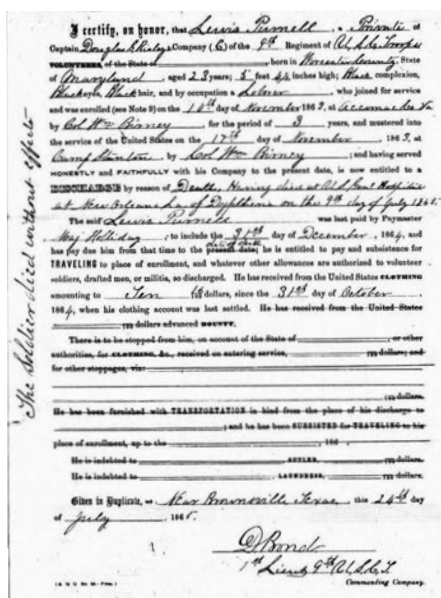 I certify, on honor, that Lewis Purnell a Private of
Captain Douglas G. Risley's Company (C) of the 9th Regiment of U.S.C. Troops
VOLUNTEERS, of the State of born in Worcester County, State
of Maryland, aged 23 years; 5 feet 4½ inches high; Black complexion,
Black eyes, Black hair, and by occupation a Laborer, who joined for service
and was enrolled (see Note 9) on the 10th day of November 1863, at Accomack Va
by Col Wm Birney, for the period of 3 years, and mustered into
the service of the United States on the 17th day of November 1863, at
Camp Stanton, by Col Wm Birney; and having served
HONESTLY and FAITHFULLY with his Company to the present date, is now entitled to a
DISCHARGE by reason of Death, Having died at U.S. Genl Hospital
at New Orleans La of on the 9th day of July 1865.
The said Lewis Purnell was last paid by Paymaster
Maj Holliday to include the 31st day of December, 1864, and
has pay due him from that time to the present date; he is entitled to pay and subsistence for
date of death
TRAVELING to place of enrollment, and whatever other allowances are authorized to volunteer
soldiers, drafted men, or militia, so discharged. He has received from the United States CLOTHING
amounting to Ten dollars, since the 31st day of October
1864, when his clothing account was last settled. He has received from the United States
dollars advanced BOUNTY.
There is to be stopped from him, on account of the State of , or other
authorities, for CLOTHING, &c., received on entering service, dollars; and
for other stoppages, viz:
dollars.
He has been furnished with TRANSPORTATION in kind from the place of his discharge to
; and he has been SUBSISTED for TRAVELING to his
place of enrollment, up to the , 186 .
He is indebted to , SUTLER, dollars.
He is indebted to , LAUNDRESS, dollars.
Given in Duplicate, at Near Brownsville Texas, this 24th day
of July, 1865.
D. Bond
1st Lieut 9th U.S.C.T.
Commanding Company.
The Soldier died without effects